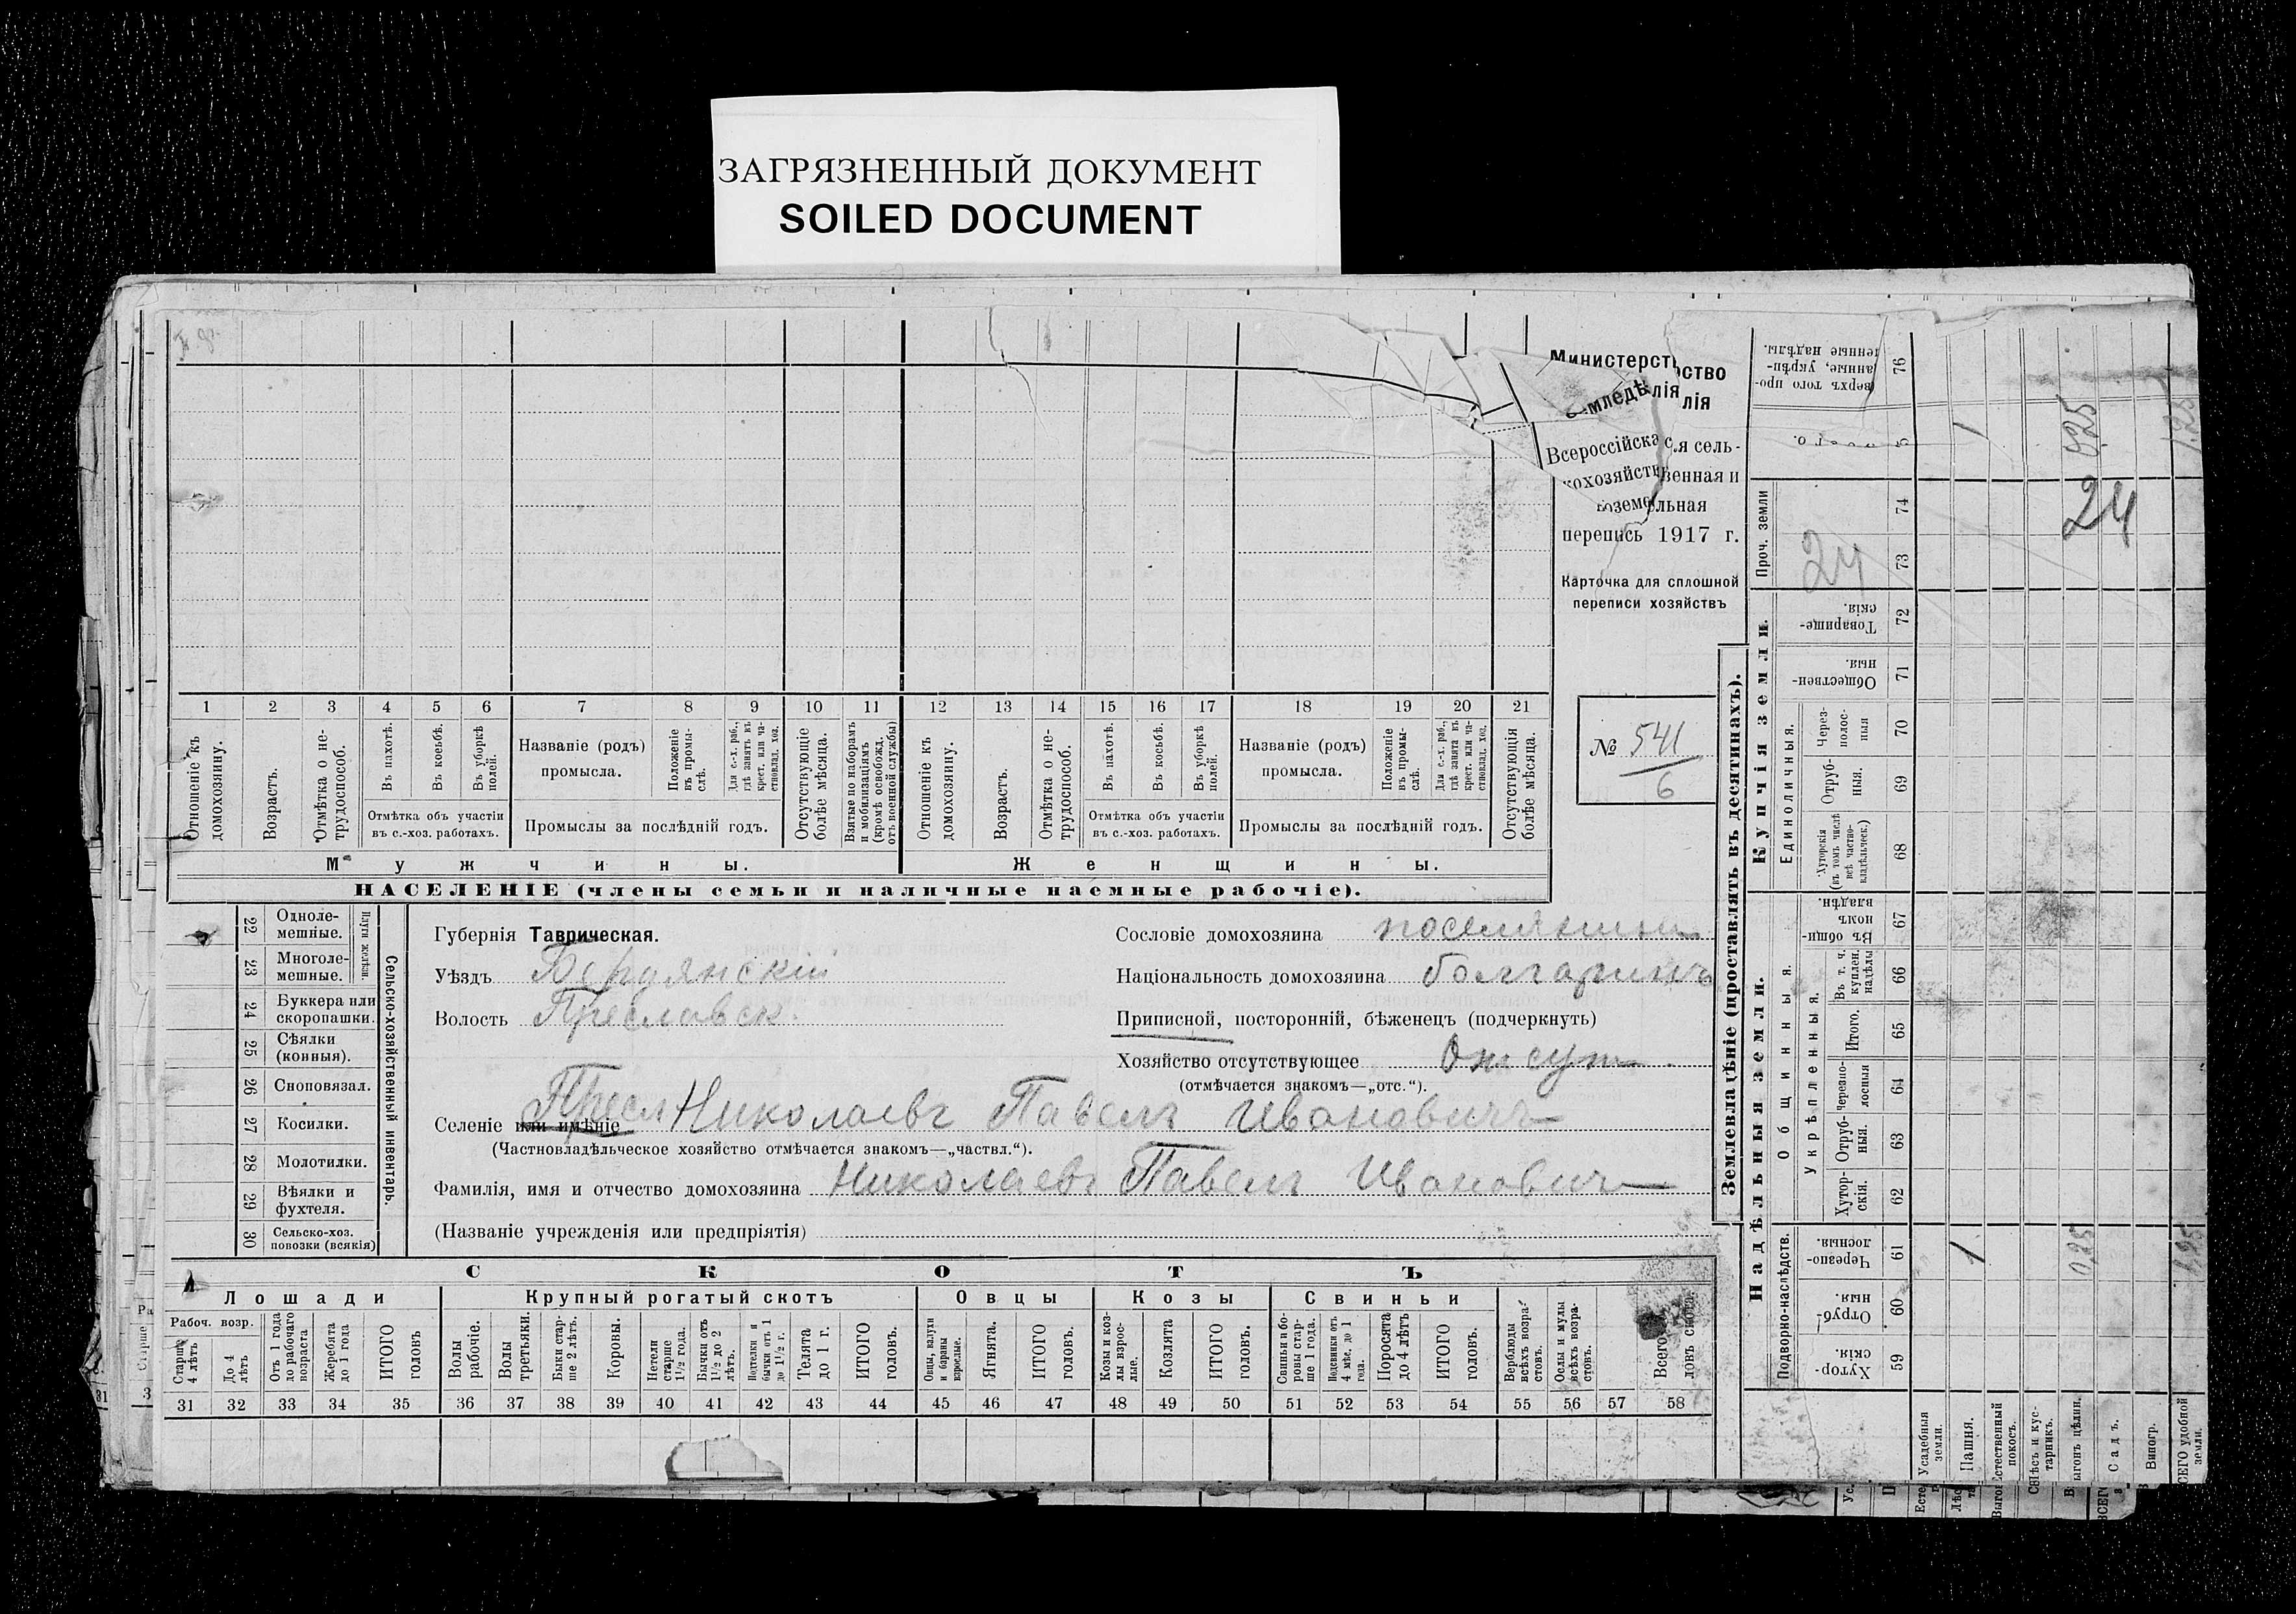 ЗАГРЯЗНЕННЫЙ ДОКУМЕНТ
SOILED DOCUMENT
Министерство
Земледѣлія
Всероссійская сель-
скохозяйственная и
поземельная
перепись 1917 г.
Карточка для сплошной
переписи хозяйствъ
№ 541
6
1 2 3 4 5 6 7 8 9 10 11 12 13 14 15 16 17 18 19 20 21
Отношеніе къ домохозяину.
Возрастъ.
Отмѣтка о не-трудоспособ.
Въ пахотѣ.
Въ косьбѣ.
Въ уборкѣ полей.
Отмѣтка объ участіи
въ с.-хоз. работахъ.
Названіе (родъ)
промысла.
Положеніе въ промы-слѣ.
Для с.-х. раб., гдѣ занятъ въ крест. или ча-стновлад. хоз.
Промыслы за послѣдній годъ.
Отсутствующіе болѣе мѣсяца.
Взятые по наборамъ и мобилизаціямъ (кромѣ освобожд. отъ военной службы)
Отношеніе къ домохозяину.
Возрастъ.
Отмѣтка о не-трудоспособ.
Въ пахотѣ.
Въ косьбѣ.
Въ уборкѣ полей.
Отмѣтка объ участіи
въ с.-хоз. работахъ.
Названіе (родъ)
промысла.
Положеніе въ промы-слѣ.
Для с.-х. раб., гдѣ занята въ крест. или ча-стновлад. хоз.
Промыслы за послѣдній годъ.
Отсутствующія болѣе мѣсяца.
Мужчины. Женщины.
НАСЕЛЕНІЕ (члены семьи и наличные наемные рабочіе).
22 Одноле-мешные.
23 Многоле-мешные.
Плуги желѣзн.
24 Буккера или скоропашки.
25 Сѣялки (конныя).
26 Сноповязал.
27 Косилки.
28 Молотилки.
29 Вѣялки и фухтеля.
30 Сельско-хоз. повозки (всякія)
Сельско-хозяйственный инвентарь.
Губернія Таврическая.
Уѣздъ Бердянскій
Волость Преславск.
Сословіе домохозяина поселянинъ
Національность домохозяина болгаринъ
Приписной, посторонній, бѣженецъ (подчеркнуть)
Хозяйство отсутствующее Отсут.
(отмѣчается знакомъ—„отс.“).
Селеніе или имѣніе Пресл Николаевъ Павелъ Ивановичъ
(Частновладѣльческое хозяйство отмѣчается знакомъ—„частвл.“).
Фамилія, имя и отчество домохозяина Николаевъ Павелъ Ивановичъ
(Названіе учрежденія или предпріятія)
СКОТЪ
Лошади Крупный рогатый скотъ Овцы Козы Свиньи
Рабоч. возр.
Старше 4 лѣтъ
До 4 лѣтъ
Отъ 1 года до рабочаго возраста
Жеребята до 1 года
ИТОГО головъ
Волы рабочіе.
Волы третьяки.
Быки стар-ше 2 лѣтъ.
Коровы.
Нетели старше 1½ года.
Бычки отъ 1½ до 2 лѣтъ.
Подтелки и бычки отъ 1 до 1½ г.
Телята до 1 г.
ИТОГО головъ.
Овцы, валухи и бараны взрослые.
Ягнята.
ИТОГО головъ.
Козы и коз-лы взрос-лые.
Козлята
ИТОГО головъ.
Свиньи и бо-ровы стар-ше 1 года.
Подсвинки отъ 4 мѣс. до 1 года.
Поросята до 4 лѣтъ
ИТОГО головъ.
Верблюды всѣхъ возра-стовъ.
Ослы и мулы всѣхъ возра-стовъ.
Всего головъ скота.
31 32 33 34 35 36 37 38 39 40 41 42 43 44 45 46 47 48 49 50 51 52 53 54 55 56 57 58
Землевладѣніе (проставлять въ десятинахъ).
Надѣльныя земли. Купчія земли. Проч. земли
Подворно-наслѣдств.
Общинныя.
Укрѣпленныя.
Единоличныя.
Хутор-скія. 59
Отруб-ныя. 60
Черезпо-лосныя. 61
Хутор-скія. 62
Отруб-ныя. 63
Черезпо-лосныя 64
Итого. 65
Въ т. ч. куплен. надѣлы 66
Въ общи-номъ владѣн. 67
Хуторскія (въ томъ числѣ всѣ частно-владѣльческ.) 68
Отруб-ныя. 69
Через-полос-ныя 70
Обществен-ныя. 71
Товарище-скія. 72
73
74
76
24
24
1
0,25
1,25
1
0,25
1,25
Усадебныя земли.
Пашня.
Естественный покосъ.
Лѣсъ и кус-тарникъ.
Выгонъ цѣлин.
Садъ.
Виногр.
ВСЕГО удобной земли.